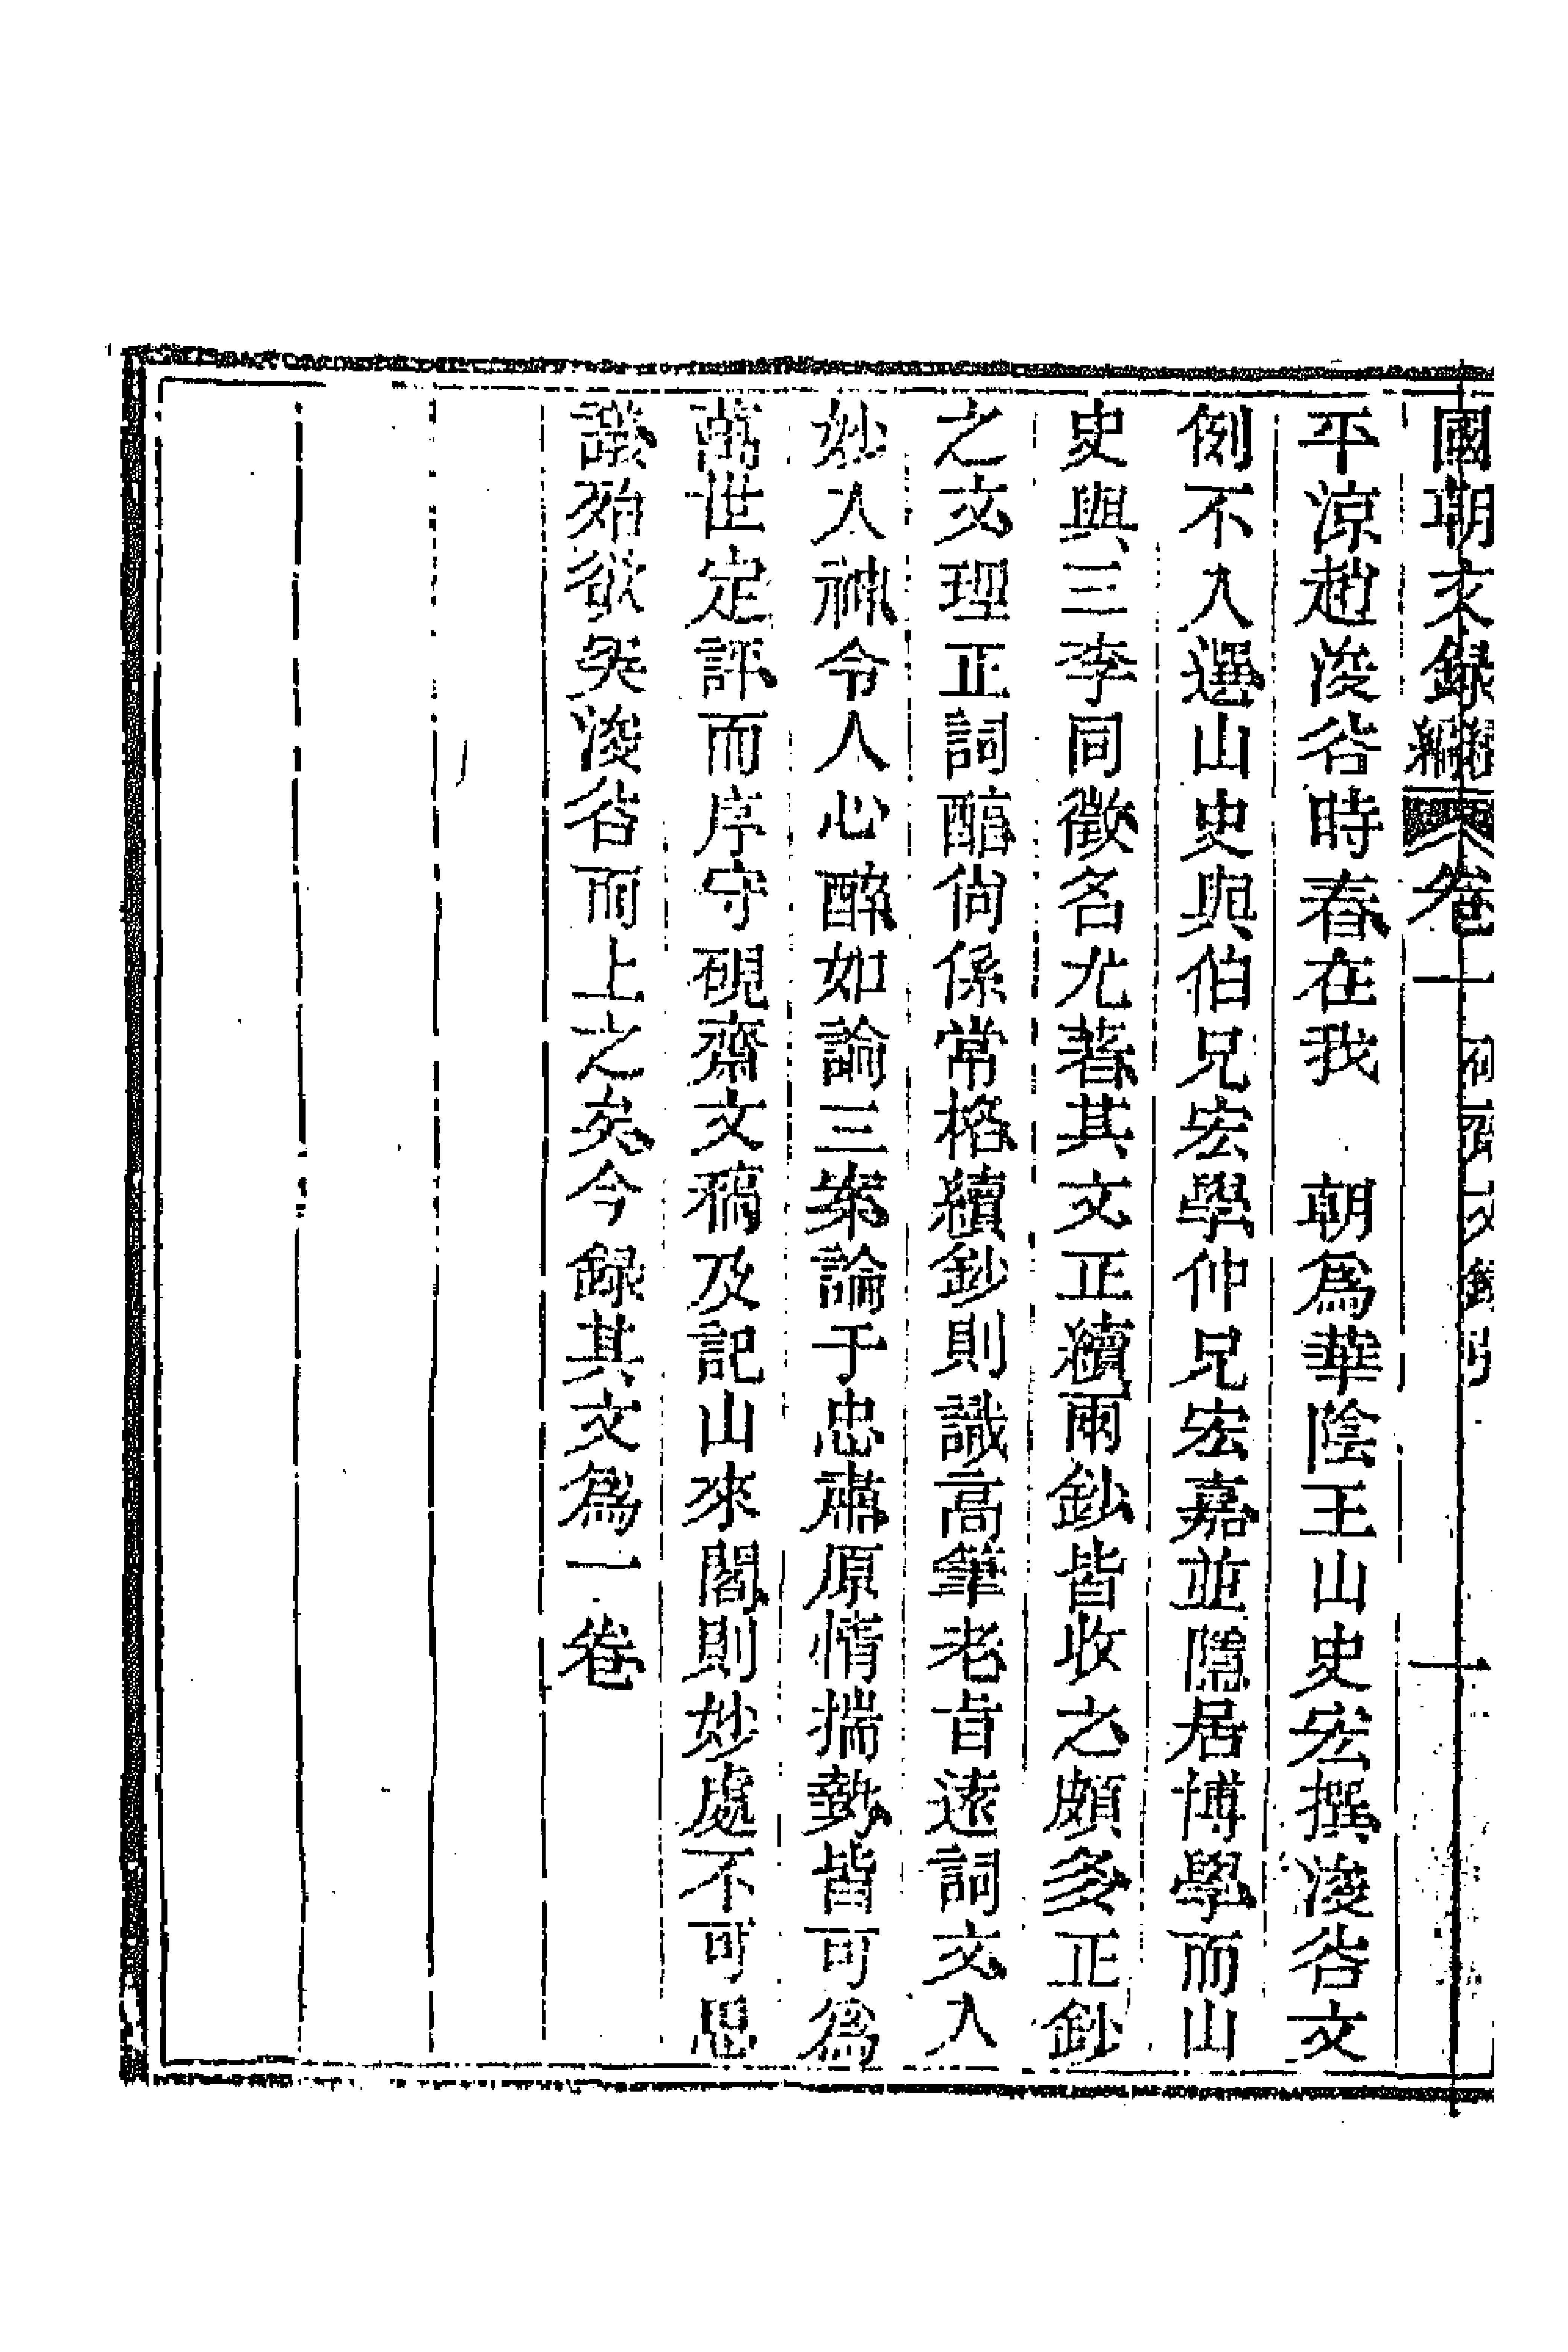 國朝文錄續編 卷一 砥齋文錄引 一
平涼趙浚谷時春在我 朝爲華陰王山史宏撰浚谷文
例不入選山史與伯兄宏學仲兄宏嘉並隱居博學而山
史與三李同徵名尤著其文正續兩鈔皆收之頗多正鈔
之文理正詞醇尙係常格續鈔則識高筆老旨遠詞文入
妙入神令人心醉如論三案論于忠肅原情揣勢皆可爲
萬世定評而序守硯齋文稿及記山來閣則妙處不可思
議殆欲突浚谷而上之矣今錄其文爲一卷